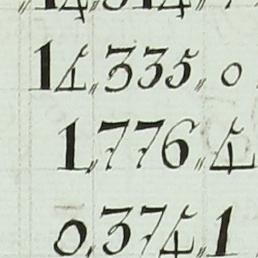 14,335,,0
1,776,,4
0,374,,1